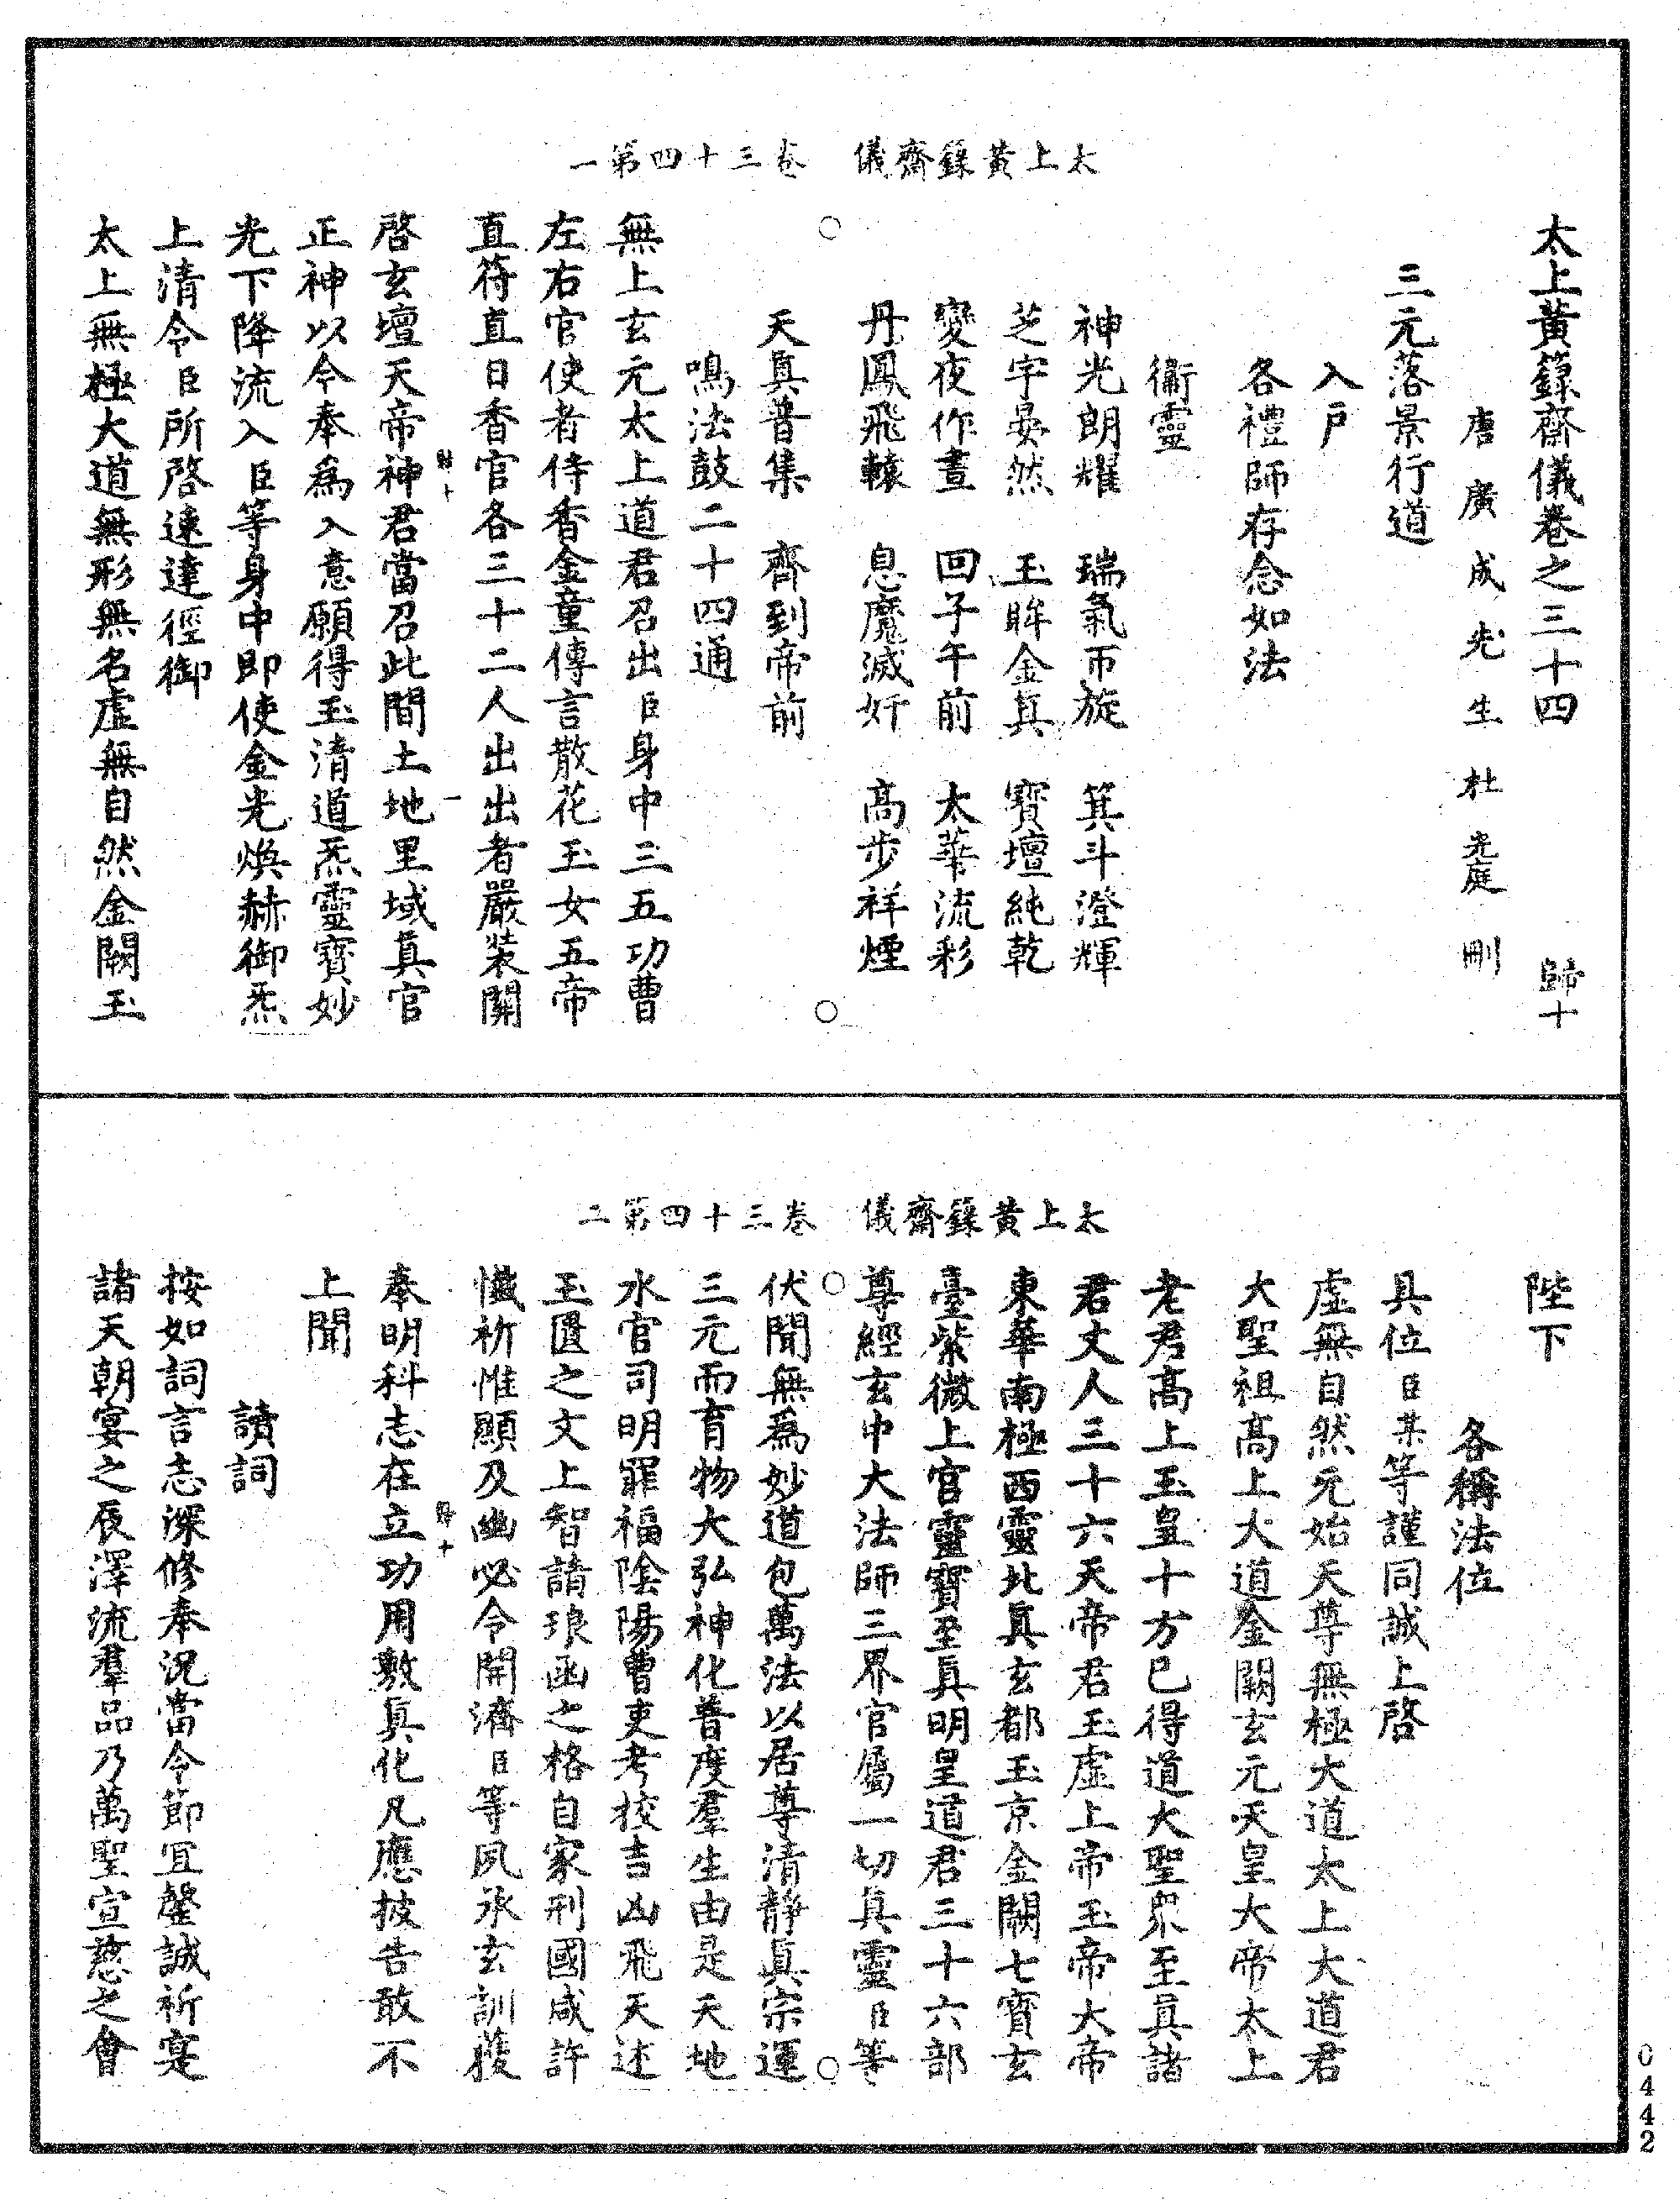 太上黃籙齋儀 卷三十四第一
太上黃籙齋儀卷之三十四 歸十
唐廣成先生杜光庭刪
三元落景行道
入戶
各禮師存念如法
衞靈
神光朗耀 瑞氣帀旋 箕斗澄輝
芝宇晏然 玉眸金真 寶壇純乾
變夜作晝 回子午前 太華流彩
丹鳳飛轅 息魔滅奸 高步祥煙
天真普集 齊到帝前
鳴法鼓二十四通
無上玄元太上道君召出臣身中三五功曹
左右官使者侍香金童傳言散花玉女五帝
直符直日香官各三十二人出出者嚴裝關
啓玄壇天帝神君當召此間土地里域真官
歸十 一
正神以今奉爲入意願得玉清道炁靈寶妙
光下降流入臣等身中即使金光煥赫御炁
上清令臣所啓速達徑御
太上無極大道無形無名虛無自然金闕玉
太上黃籙齋儀 卷三十四第二
陛下
各稱法位
具位臣某等謹同誠上啓
虛無自然元始天尊無極大道太上大道君
大聖祖高上大道金闕玄元天皇大帝太上
老君高上玉皇十方已得道大聖衆至真諸
君丈人三十六天帝君玉虛上帝玉帝大帝
東華南極西靈北真玄都玉京金闕七寶玄
臺紫微上宮靈寶至真明皇道君三十六部
尊經玄中大法師三界官屬一切真靈臣等
伏聞無爲妙道包萬法以居尊清靜真宗運
三元而育物大弘神化普度羣生由是天地
水官司明罪福陰陽曹吏考校吉凶飛天述
玉匱之文上智請琅函之格自家刑國咸許
懺祈惟顯及幽必令開濟臣等夙承玄訓獲
奉明科志在立功用敷真化凡應披告敢不
歸十
上聞
讀詞
按如詞言志深修奉況當令節冝罄誠祈寔
諸天朝宴之辰澤流羣品乃萬聖宣慈之會
0442